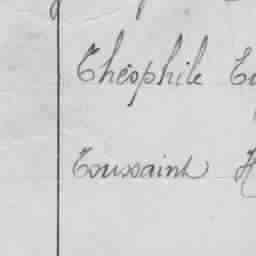 Théophile
Toussaint